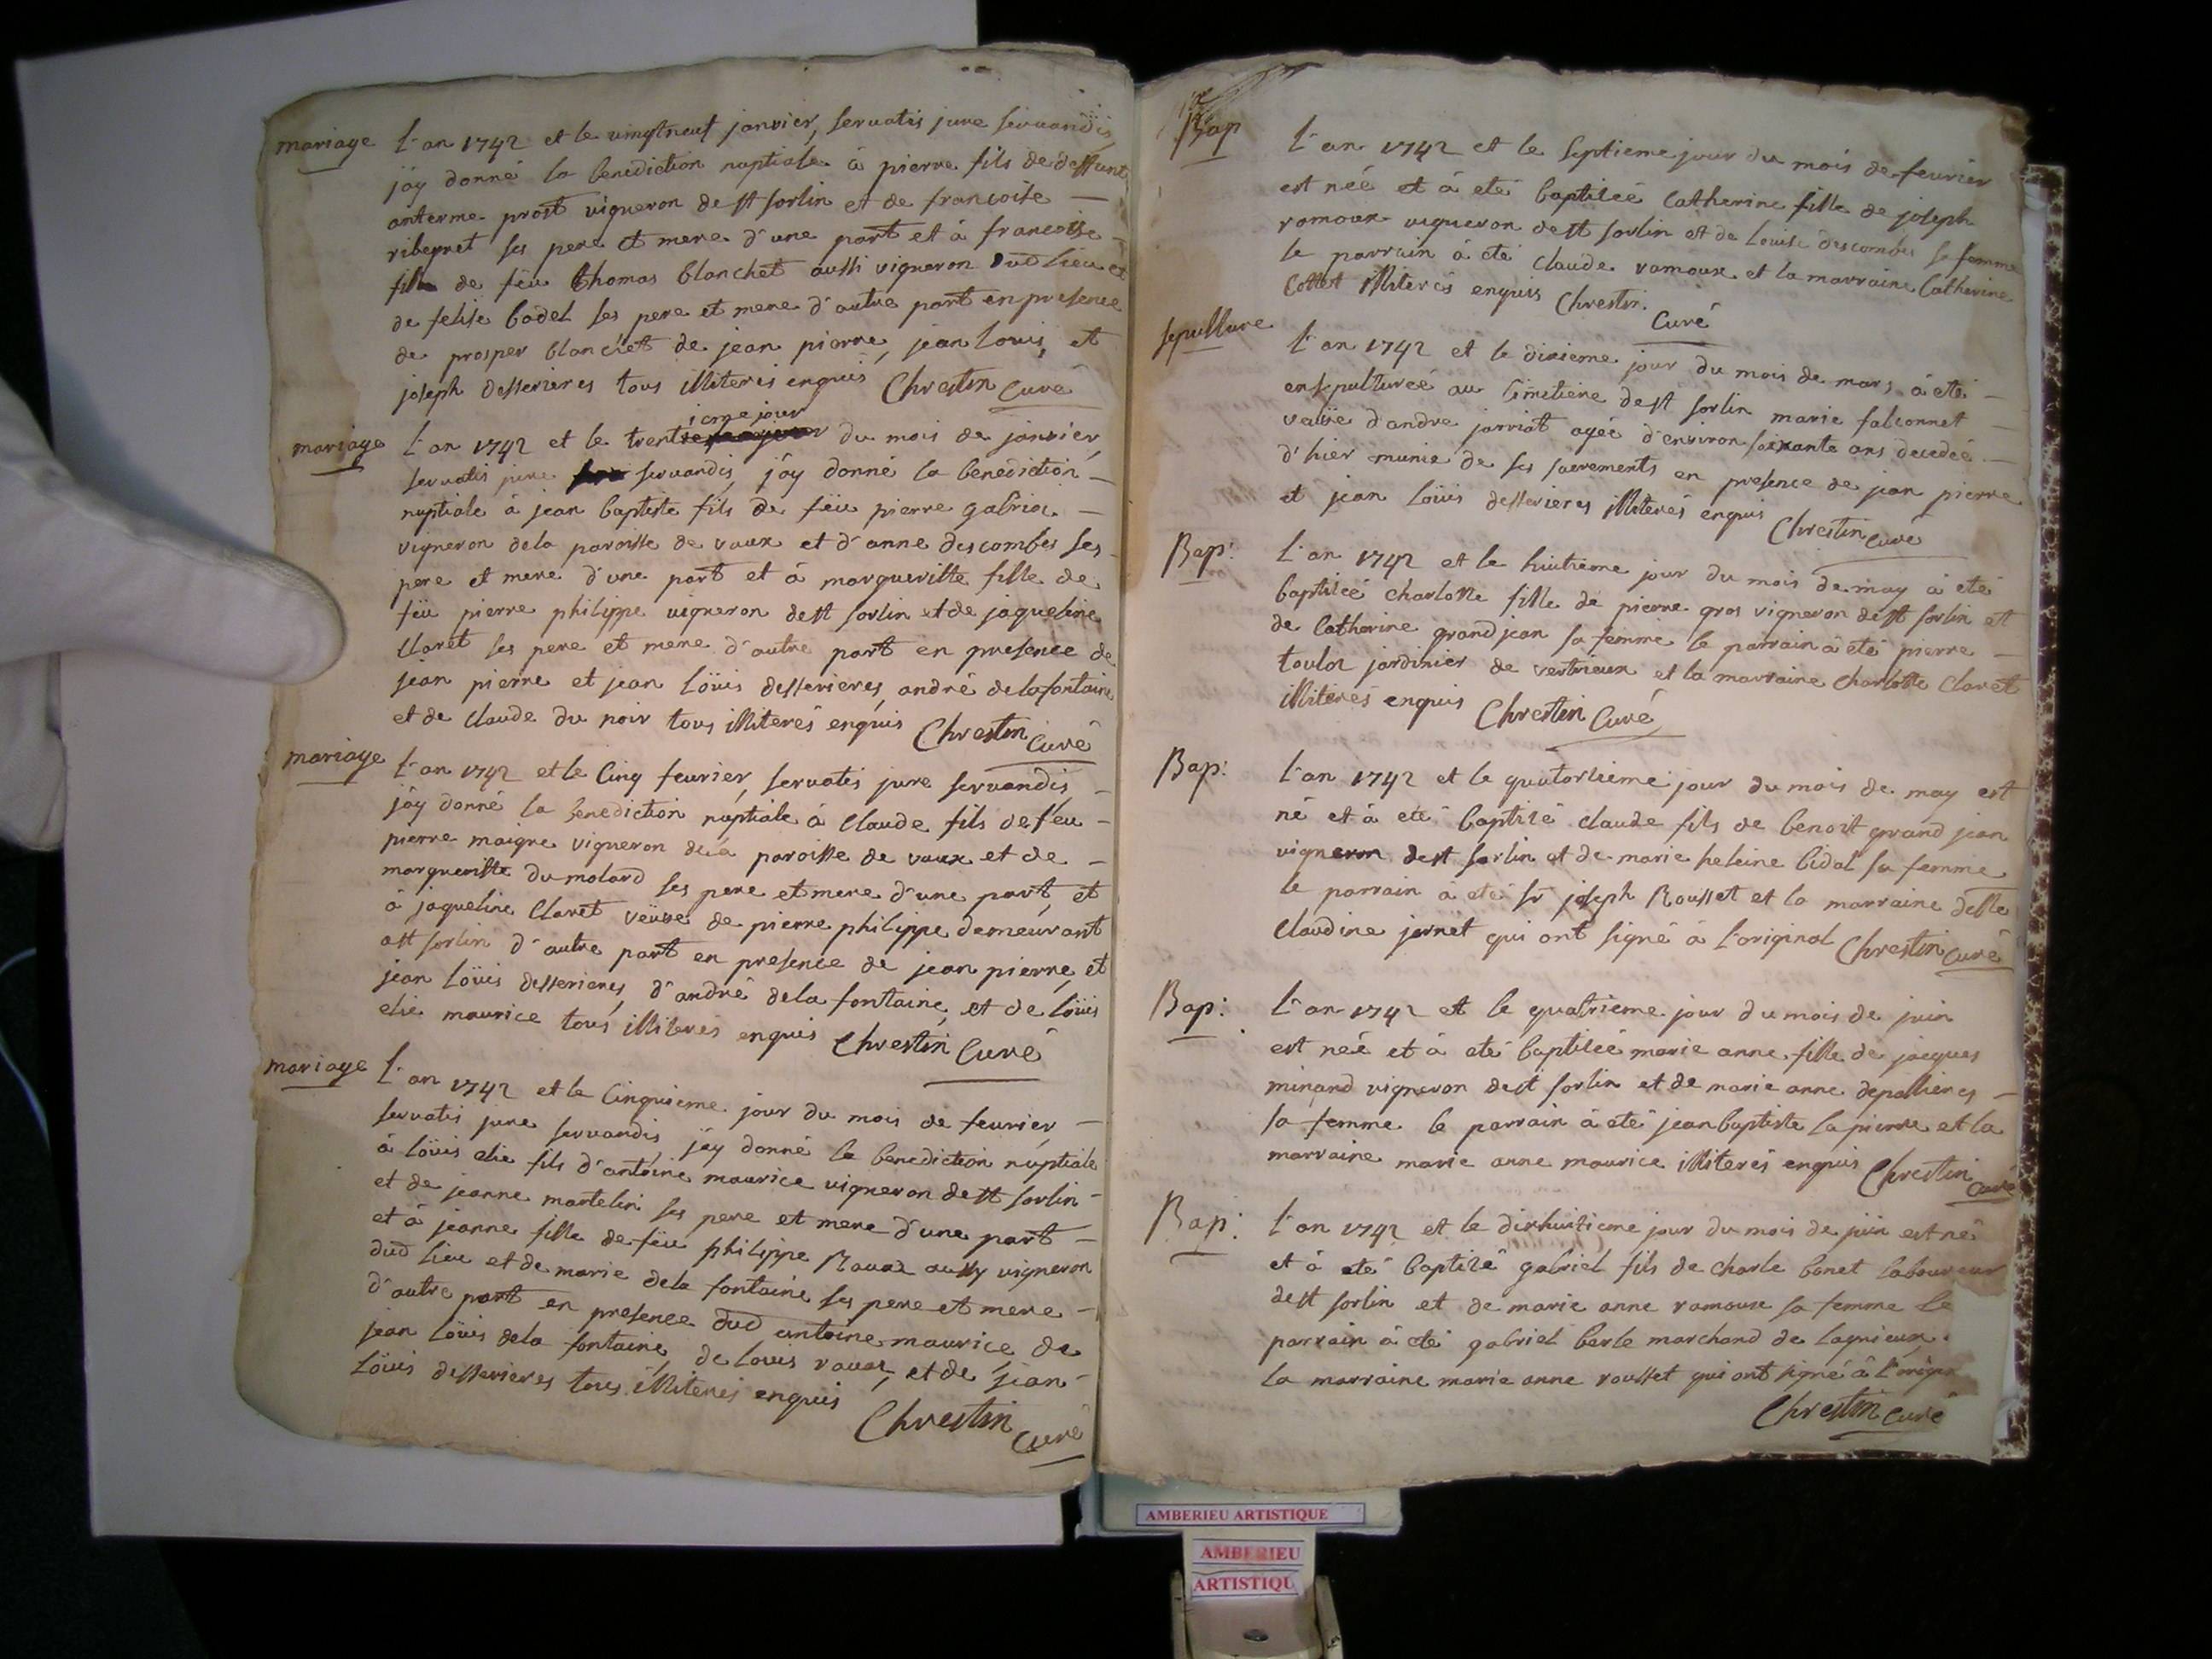 mariage L'an 1742 et le vingtneuf janvier, servatis jure servandis,
j'ay donné la benediction nuptiale à pierre fils de deffunt
anterme prost vigneron de st sorlin et de francoise
ribeyret ses pere et mere d'une part et à francoise
fille de feu thomas blanchet aussi vigneron dud lieu et
de felise bodel ses pere et mere d'autre part en presence
de prosper blanchet de jean pierre, jean louis, et
joseph desserieres tous illiterés enquis Chrestin curé
mariage L'an 1742 et le trentieme jour du mois de janvier,
servatis jure servandis, j'ay donné la benediction
nuptiale à jean baptiste fils de feu pierre gabriel
vigneron dela paroisse de vaux et d'anne descombes ses
pere et mere d'une part et à margueritte fille de
feu pierre philippe vigneron de st sorlin et de jaqueline
Claret ses pere et mere d'autre part en presence de
jean pierre et jean loüis desserieres, andré delafontaine
et de Claude du noir tous illiterés enquis Chrestin Curé
mariage L'an 1742 et le Cinq fevrier, servatis jure servandis,
j'ay donné la benediction nuptiale à Claude fils de feu
pierre maigre vigneron dela paroisse de vaux et de
margueritte du molard ses pere et mere d'une part, et
à jaqueline Claret veüve de pierre philippe demeurant
a st sorlin d'autre part en presence de jean pierre, et
jean loüis desserieres, d'andré dela fontaine, et de loüis
elie maurice tous illiterés enquis Chrestin Curé
mariage L'an 1742 et le Cinquieme jour du mois de fevrier
servatis jure servandis, j'ay donné la benediction nuptiale
à loüis elie fils d'antoine maurice vigneron de st sorlin
et de jeanne martelin ses pere et mere d'une part
et à jeanne fille de feu philippe Ravat aussy vigneron
dud lieu et de marie dela fontaine ses pere et mere
d'autre part en presence dud antoine maurice, de
jean loüis dela fontaine, de louis ravat, et de jean
loüis desserieres tous illiterés enquis
Chrestin Curé
Bap L'an 1742 et le septieme jour du mois de fevrier
est neé et à eté baptiseé Catherine fille de joseph
ramoux vigneron de st sorlin et de Louise descombes sa femme
le parrain à eté claude ramoux et la marraine Catherine
Cottet illiterés enquis Chrestin
Curé
sepulture L'an 1742 et le dixieme jour du mois de mars à eté
ensepultureé au Cimetiere de st sorlin marie falconnet
veuve d'andre jarriot ageé d'environ soixante ans decedeé
d'hier munie de ses sacrements en presence de jean pierre
et jean loüis desserieres illiterés enquis Chrestin Curé
Bap: L'an 1742 et le huitieme jour du mois de may à eté
baptiseé charlotte fille de pierre gros vigneron de st sorlin et
de Catherine grand jean sa femme le parrain à eté pierre
jardinier de vertrieux et la marraine charlotte Claret
illiterés enquis Chrestin Curé
Bap: L'an 1742 et le quatorsieme jour du mois de may est
né et à eté baptisé claude fils de benoit grand jean
vigneron de st sorlin et de marie heleine bidal sa femme
le parrain à eté sr joseph Rousset et la marraine delle
Claudine jornet qui ont signé à l'original Chrestin Curé
Bap: L'an 1742 et le quatrieme jour du mois de juin
est neé et à eté baptiseé marie anne fille de jacques
minand vigneron de st sorlin et de marie anne depallieres
sa femme le parrain à eté jean baptiste la pierre et la
marraine marie anne maurice illiterés enquis Chrestin Curé
Bap: L'an 1742 et le dixhuitieme jour du mois de juin est né
et à eté baptisé gabriel fils de charle bonet laboureur
de st sorlin et de marie anne ramoux sa femme le
parrain à eté gabriel berle marchand de lagnieux.
la marraine marie anne rousset qui ont signé à l'origin
Chrestin Curé
AMBERIEU ARTISTIQUE
AMBERIEU
ARTISTIQU